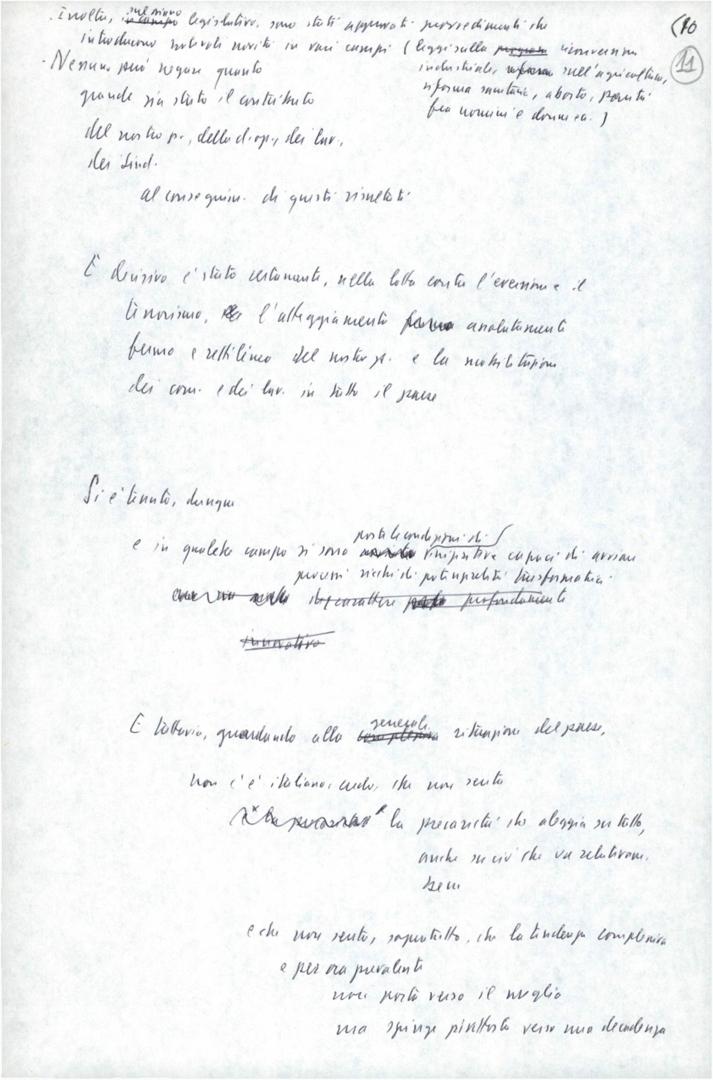 (10
11
. Inoltre, sul piano legislativo, sono stati approvati provvedimenti che
introducono notevoli novità in vari campi (leggi sulla riconversione
industriale, sull'agricoltura,
riforma sanitaria, aborto, parità
fra uomini e donne ecc.)
. Nessuno può negare quanto
grande sia stato il contributo
del nostro p., delle org. dei lav.,
dei sind.
al conseguim. di questi risultati
E decisivo è stato certamente, nella lotta contro l'eversione e il
terrorismo, l'atteggiamento assolutamente
fermo e rettilineo del nostro p. e la mobilitazione
dei com. e dei lav. in tutto il paese
Si è tenuto, dunque
e in qualche campo si sono poste le condizioni di iniziative capaci di avviare
processi ricchi di potenzialità trasformatrici.
di carattere profondamente
innovativo
E tuttavia, guardando alla complessiva generale situazione del paese,
non c'è italiano, credo, che non senta
la precarietà che aleggia su tutto,
anche su ciò che va relativam.
bene
e che non senta, soprattutto, che la tendenza complessiva
e per ora prevalente
non porta verso il meglio
ma spinge piuttosto verso una decadenza